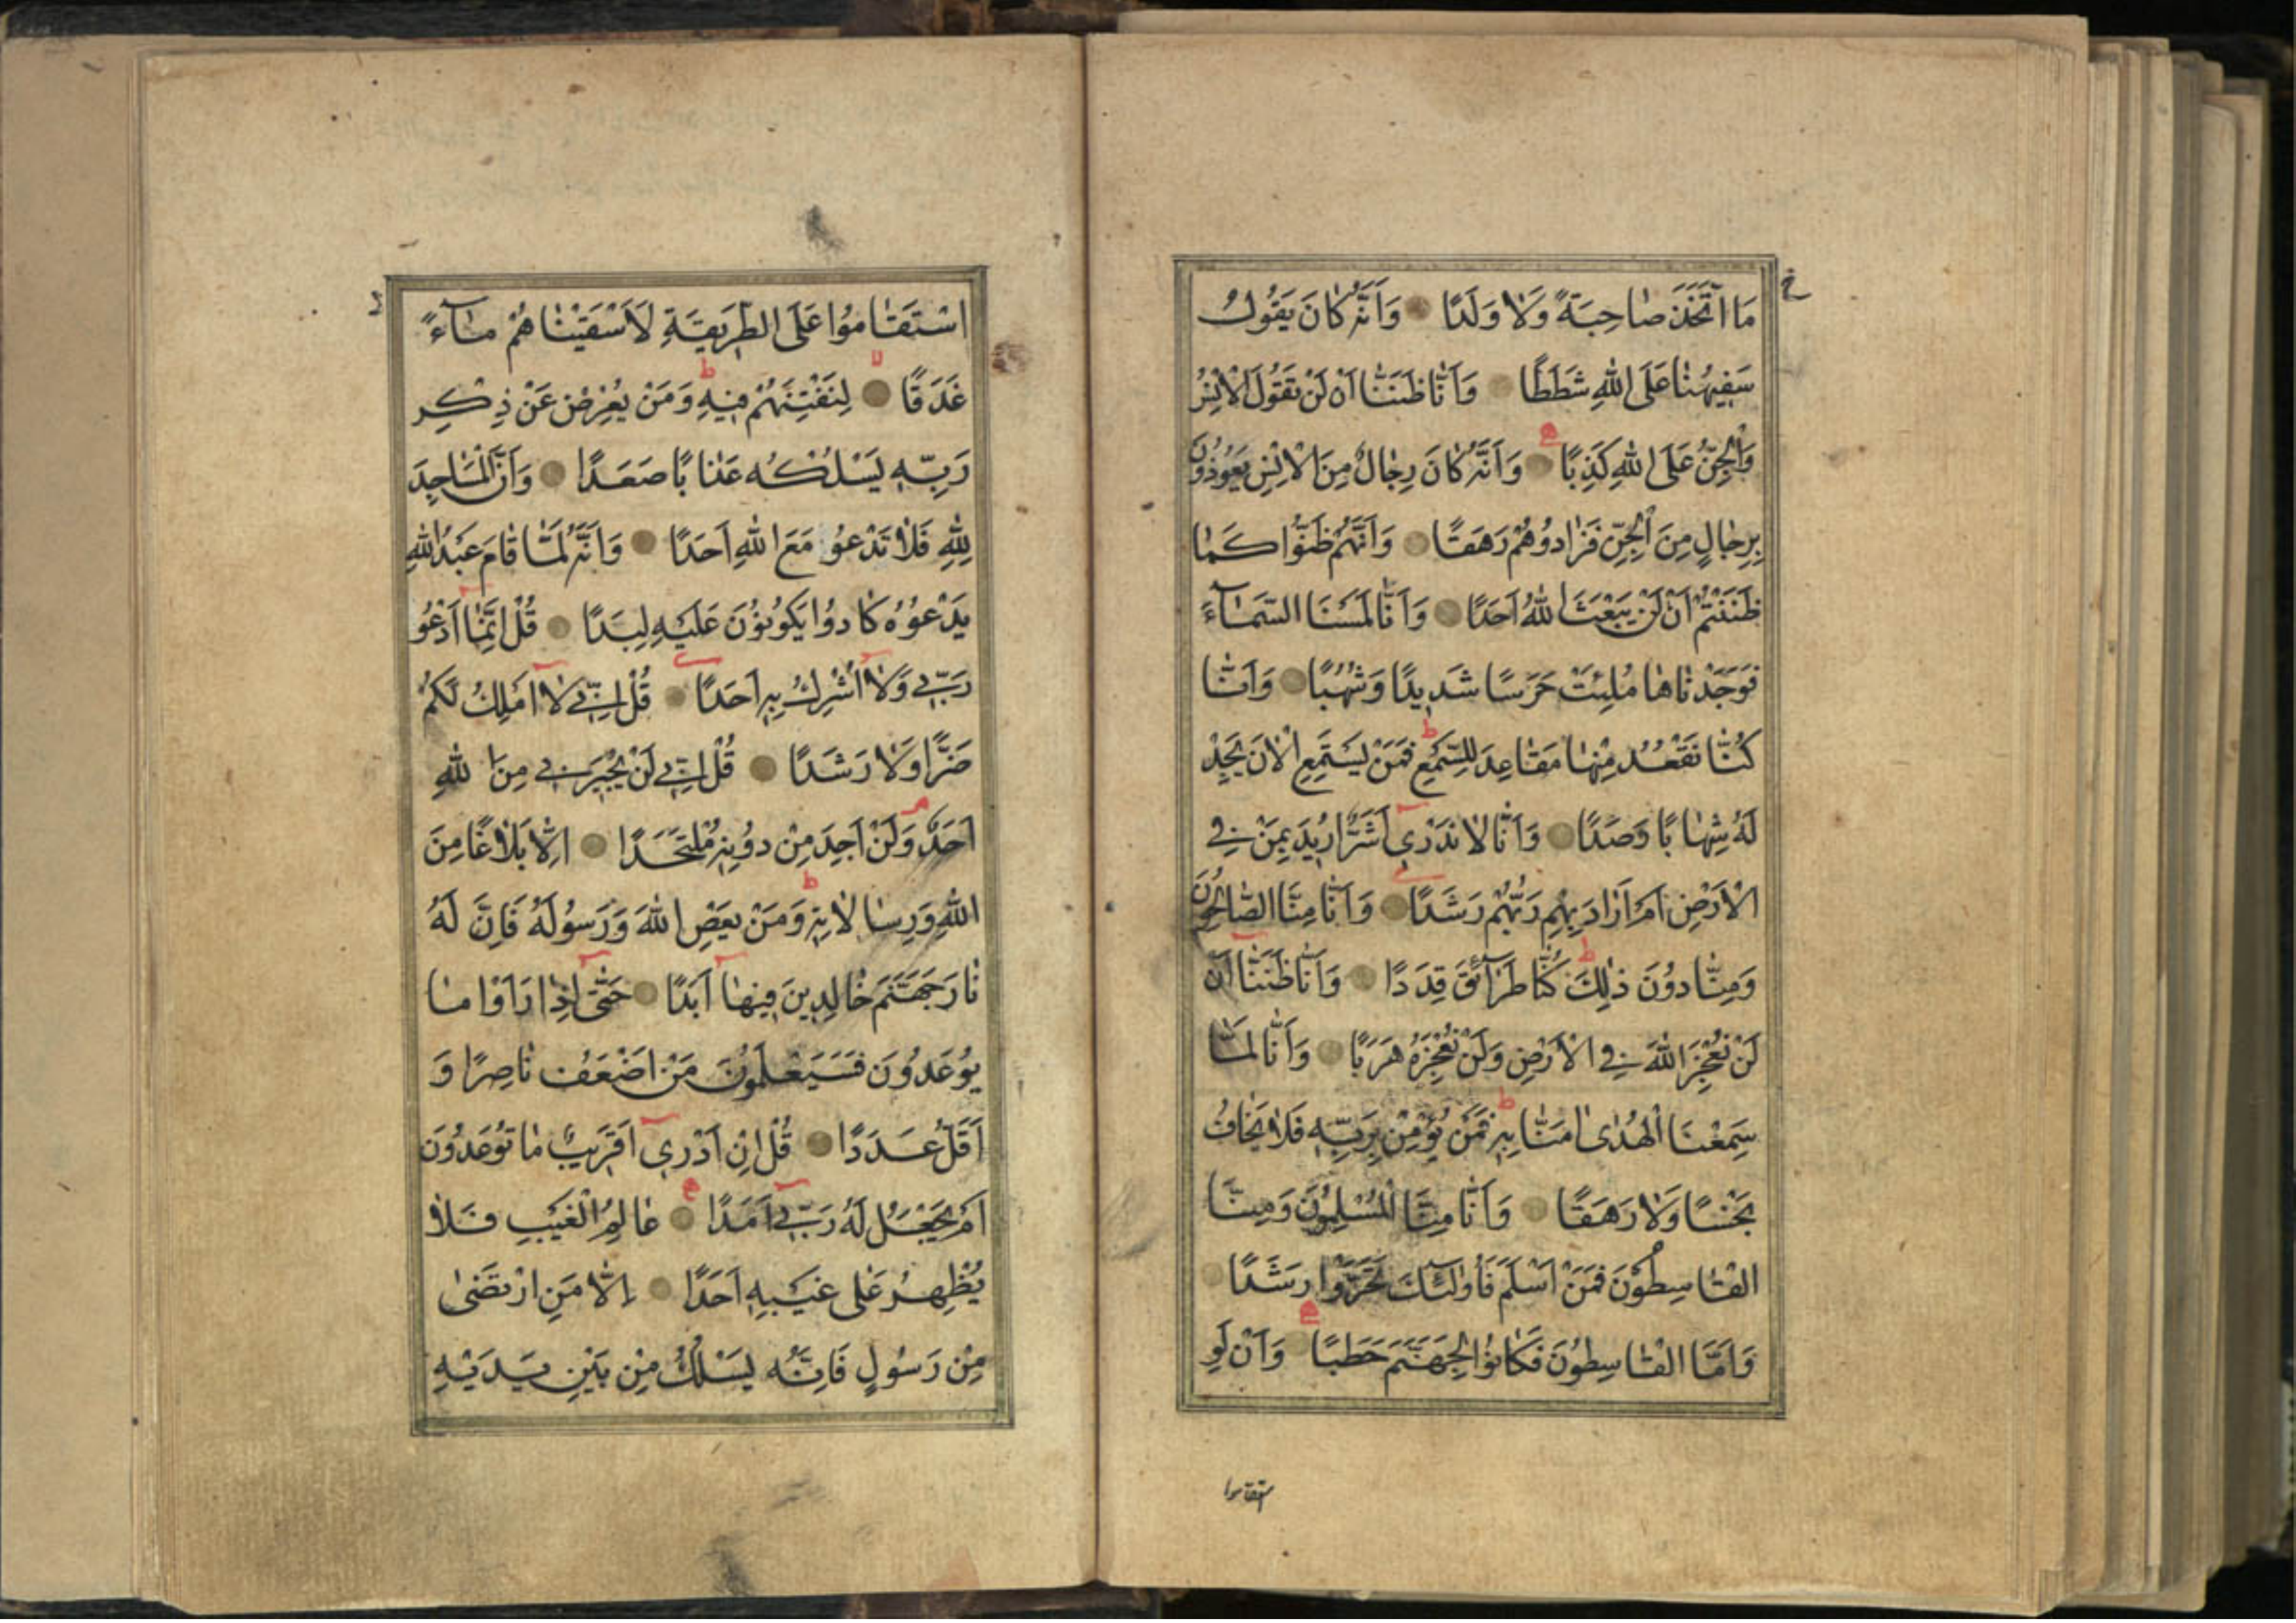 مَا اتَّخَذَ صَاحِبَةً وَلَا وَلَدًا وَاَنَّهُ كَانَ يَقُولُ
سَفِيهُنَا عَلَى اللهِ شَطَطًا وَاَنَّا ظَنَنَّا اَنْ لَنْ تَقُولَ الْاِنْسُ
وَالْجِنُّ عَلَى اللهِ كَذِبًا وَاَنَّهُ كَانَ رِجَالٌ مِنَ الْاِنْسِ يَعُوذُونَ
بِرِجَالٍ مِنَ الْجِنِّ فَزَادُوهُمْ رَهَقًا وَاَنَّهُمْ ظَنُّوا كَمَا
ظَنَنْتُمْ اَنْ لَنْ يَبْعَثَ اللهُ اَحَدًا وَاَنَّا لَمَسْنَا السَّمَآءَ
فَوَجَدْنَاهَا مُلِئَتْ حَرَسًا شَدِيدًا وَشُهُبًا وَاَنَّا
كُنَّا نَقْعُدُ مِنْهَا مَقَاعِدَ لِلسَّمْعِ ط فَمَنْ يَسْتَمِعِ الْاٰنَ يَجِدْ
لَهُ شِهَابًا رَصَدًا وَاَنَّا لَا نَدْرِي اَشَرٌّ اُرِيدَ بِمَنْ فِي
الْاَرْضِ اَمْ اَرَادَ بِهِمْ رَبُّهُمْ رَشَدًا وَاَنَّا مِنَّا الصَّالِحُونَ
وَمِنَّا دُونَ ذٰلِكَ ط كُنَّا طَرَآئِقَ قِدَدًا وَاَنَّا ظَنَنَّا اَنْ
لَنْ نُعْجِزَ اللهَ فِي الْاَرْضِ وَلَنْ نُعْجِزَهُ هَرَبًا وَاَنَّا لَمَّا
سَمِعْنَا الْهُدٰى اٰمَنَّا بِهِ ط فَمَنْ يُؤْمِنْ بِرَبِّهِ فَلَا يَخَافُ
بَخْسًا وَلَا رَهَقًا وَاَنَّا مِنَّا الْمُسْلِمُونَ وَمِنَّا
الْقَاسِطُونَ فَمَنْ اَسْلَمَ فَاُولٰئِكَ تَحَرَّوْا رَشَدًا
وَاَمَّا الْقَاسِطُونَ فَكَانُوا لِجَهَنَّمَ حَطَبًا وَاَنْ لَوِ
ستقاموا
اسْتَقَامُوا عَلَى الطَّرِيقَةِ لَاَسْقَيْنَاهُمْ مَآءً
غَدَقًا لا لِنَفْتِنَهُمْ فِيهِ ط وَمَنْ يُعْرِضْ عَنْ ذِكْرِ
رَبِّهِ يَسْلُكْهُ عَذَابًا صَعَدًا وَاَنَّ الْمَسَاجِدَ
لِلّٰهِ فَلَا تَدْعُو مَعَ اللهِ اَحَدًا وَاَنَّهُ لَمَّا قَامَ عَبْدُ اللهِ
يَدْعُوهُ كَادُوا يَكُونُونَ عَلَيْهِ لِبَدًا قُلْ اِنَّمَا اَدْعُو
رَبِّي وَلَا اُشْرِكُ بِهِ اَحَدًا قُلْ اِنِّي لَا اَمْلِكُ لَكُمْ
ضَرًّا وَلَا رَشَدًا قُلْ اِنِّي لَنْ يُجِيرَنِي مِنَ اللهِ
اَحَدٌ وَلَنْ اَجِدَ مِنْ دُونِهِ مُلْتَحَدًا اِلَّا بَلَاغًا مِنَ
اللهِ وَرِسَالَاتِهِ ط وَمَنْ يَعْصِ اللهَ وَرَسُولَهُ فَاِنَّ لَهُ
نَارَ جَهَنَّمَ خَالِدِينَ فِيهَا اَبَدًا حَتّٰى اِذَا رَاَوْا مَا
يُوعَدُونَ فَسَيَعْلَمُونَ مَنْ اَضْعَفُ نَاصِرًا وَ
اَقَلُّ عَدَدًا قُلْ اِنْ اَدْرِي اَقَرِيبٌ مَا تُوعَدُونَ
اَمْ يَجْعَلُ لَهُ رَبِّي اَمَدًا عَالِمُ الْغَيْبِ فَلَا
يُظْهِرُ عَلٰى غَيْبِهِ اَحَدًا اِلَّا مَنِ ارْتَضٰى
مِنْ رَسُولٍ فَاِنَّهُ يَسْلُكُ مِنْ بَيْنِ يَدَيْهِ